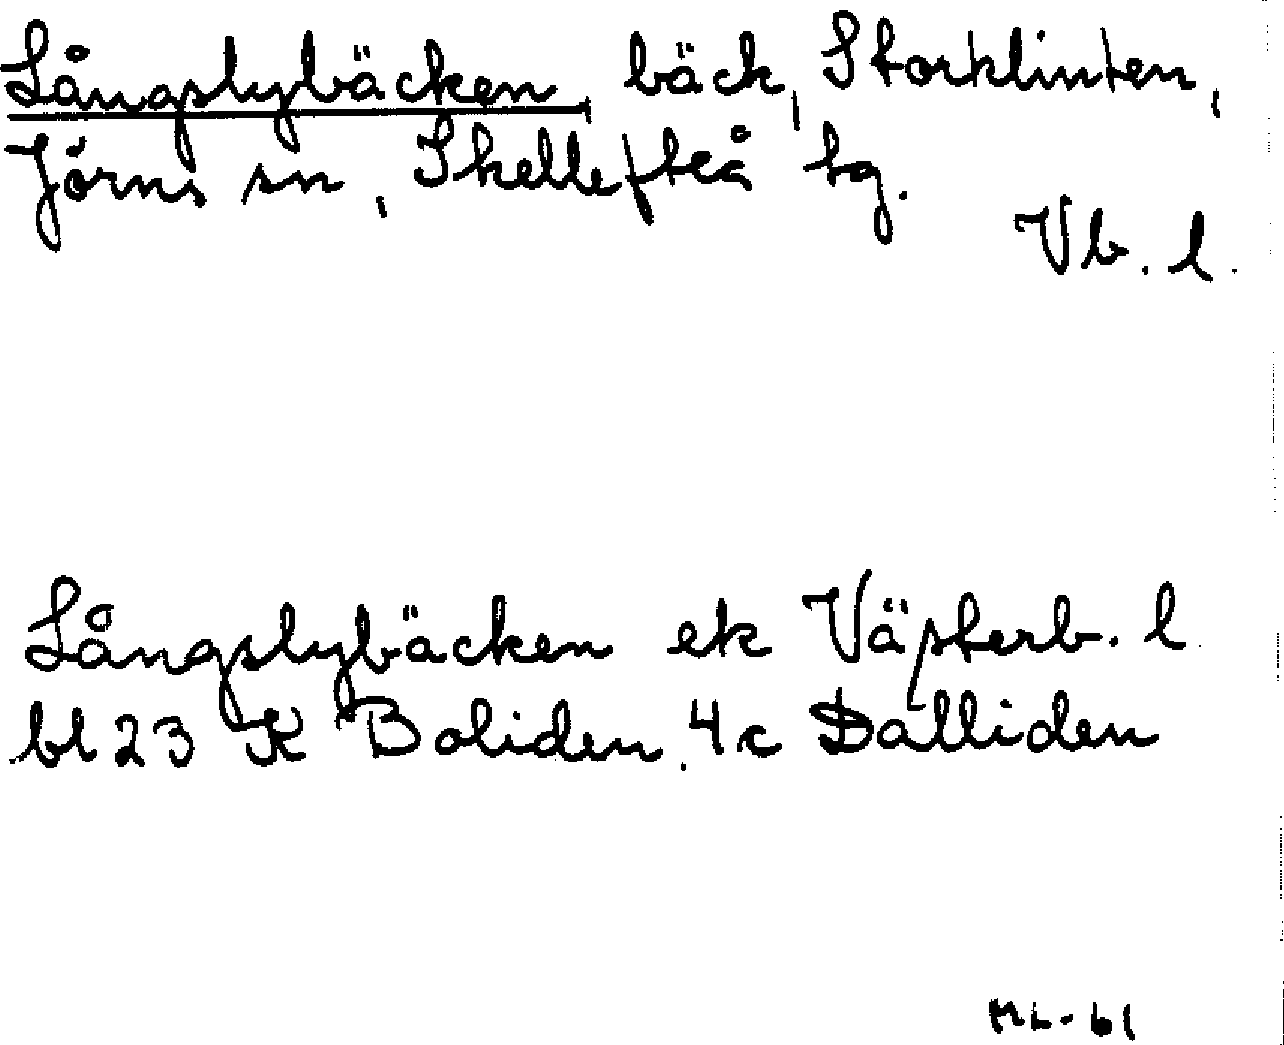 Långslybäcken bäck, Storklinten,
Jörns sn, Skellefteå tg.
Vb. l.
Långslybäcken ek Västerb. l
bl 23 K Boliden 4c Dalliden
ML-61